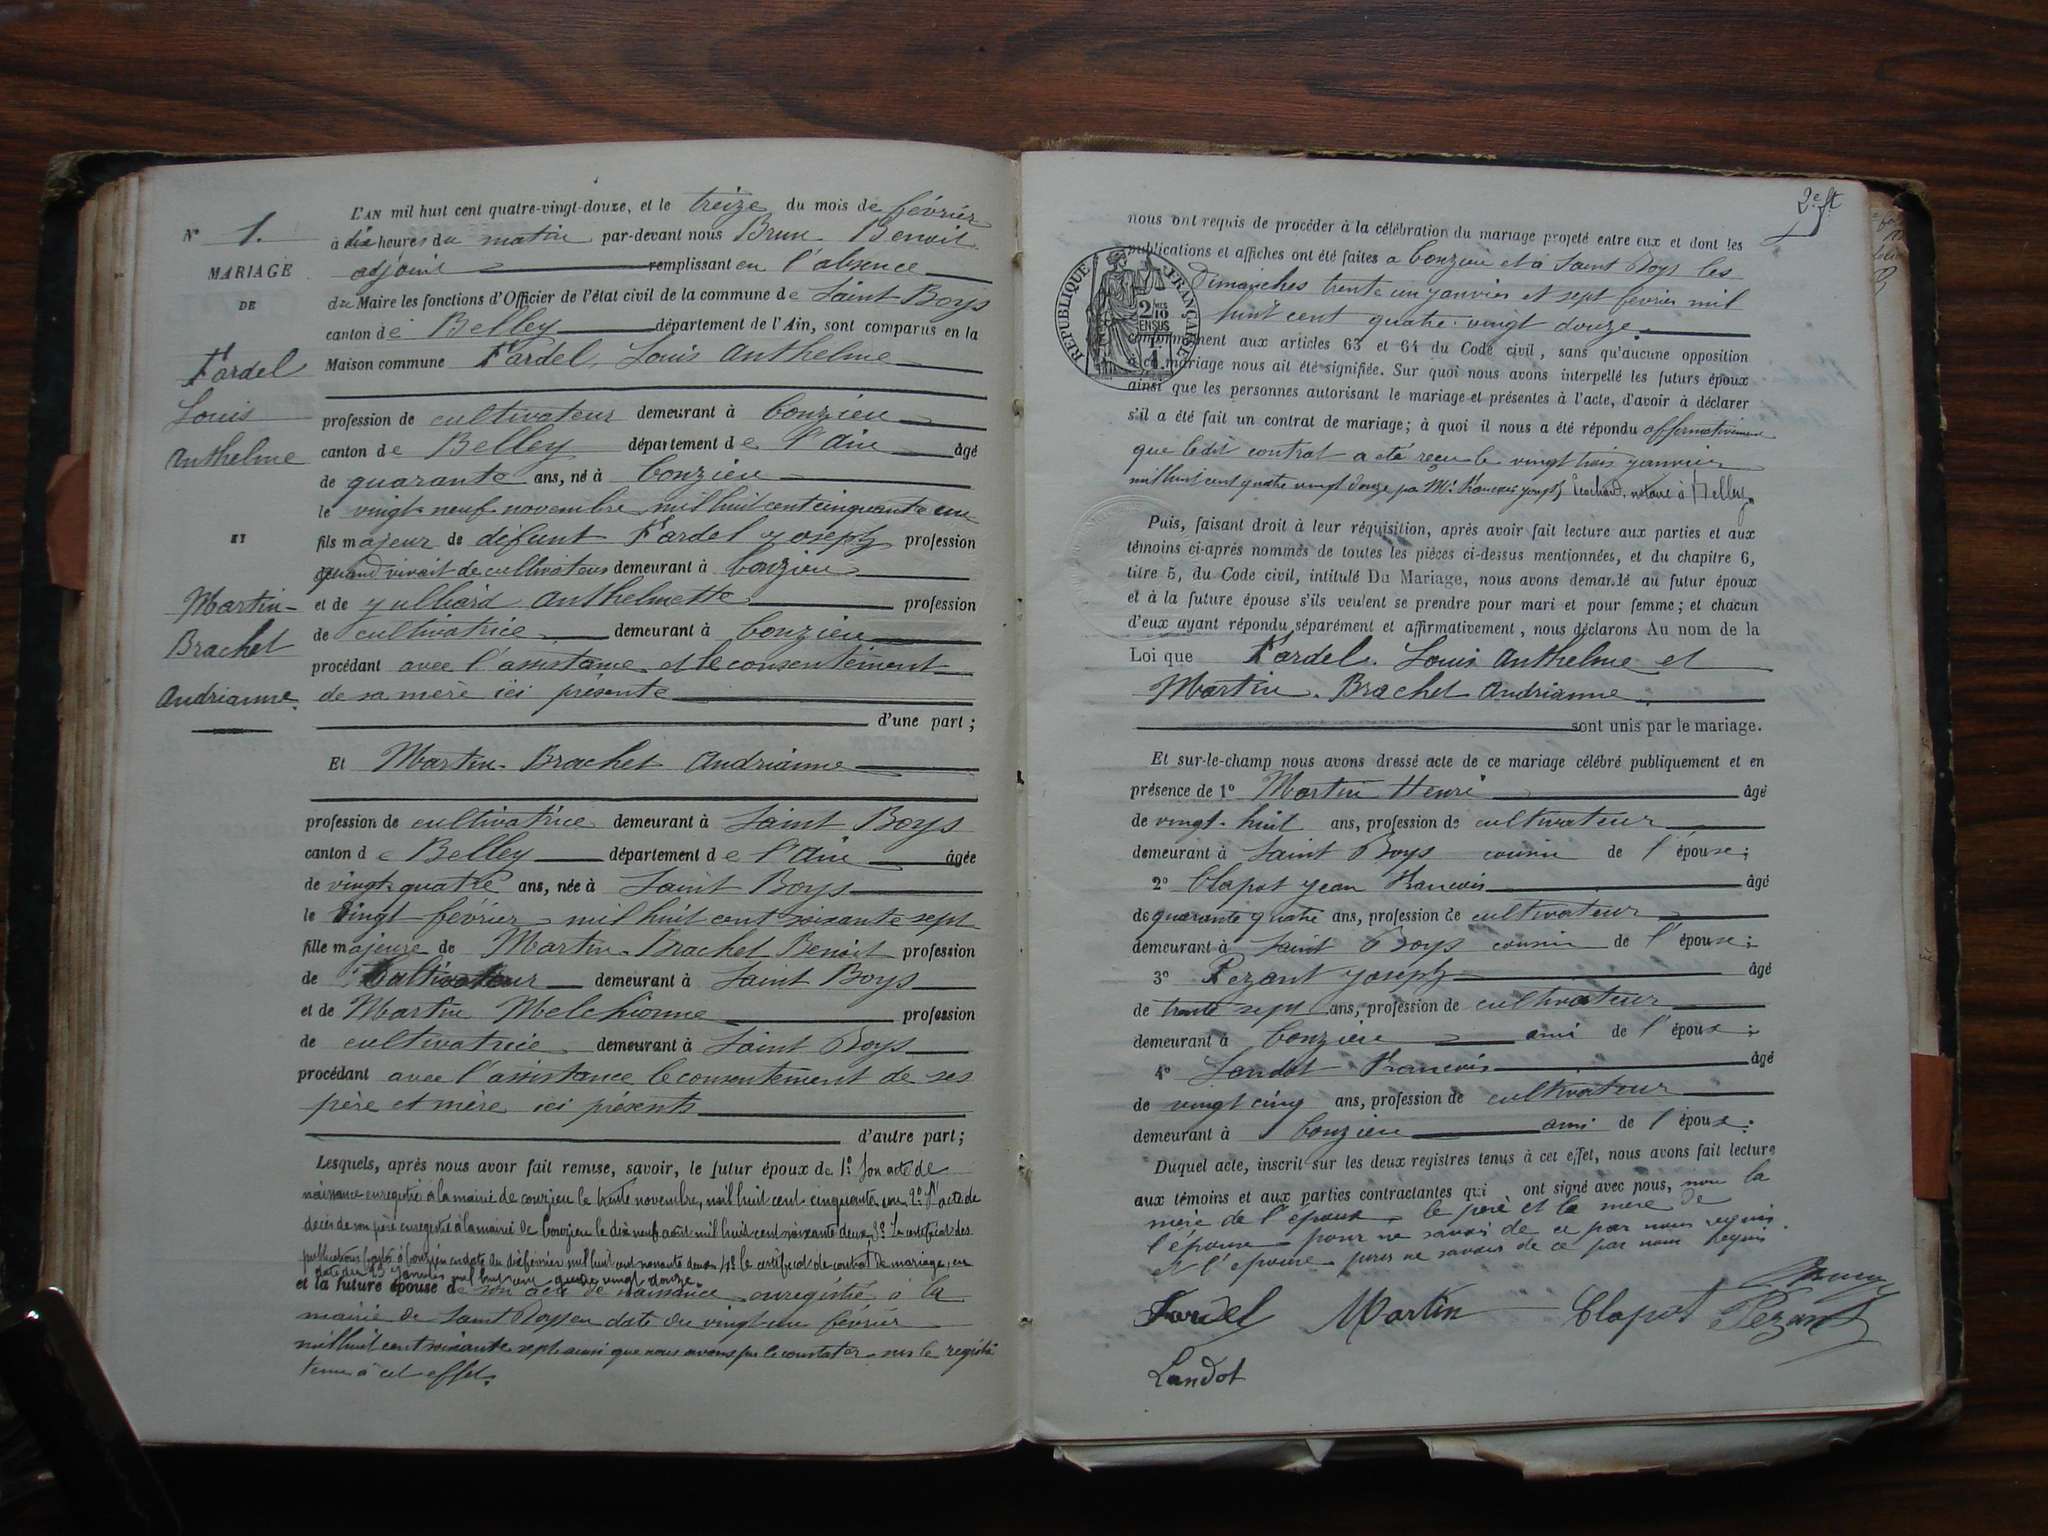 N° 1.
MARIAGE
DE
Fardel
Louis
Anthelme
ET
Martin-
Brachet
Andrianne.
L'AN mil huit cent quatre-vingt-douze, et le treize du mois de février
à dix heures du matin par-devant nous Brun Benoit
adjoint remplissant en l'absence
du Maire les fonctions d'Officier de l'état civil de la commune de Saint Boys
canton de Belley département de l'Ain, sont comparus en la
Maison commune Fardel, Louis Anthelme
profession de cultivateur demeurant à Conzieu
canton de Belley département de l'Ain âgé
de quarante ans, né à Conzieu
le vingt neuf novembre mil huit cent cinquante un
fils majeur de défunt Fardel Joseph profession
quand vivait de cultivateur demeurant à Conzieu
et de Julliard Anthelmette profession
de cultivatrice demeurant à Conzieu
procédant avec l'assistance et le consentement
de sa mère ici présente
d'une part ;
Et Martin-Brachet Andrianne
profession de cultivatrice demeurant à Saint Boys
canton de Belley département de l'Ain âgée
de vingt-quatre ans, née à Saint Boys
le vingt février mil huit cent soixante sept
fille majeure de Martin-Brachet Benoit profession
de Cultivateur demeurant à Saint Boys
et de Martin Melchionne profession
de cultivatrice demeurant à Saint Boys
procédant avec l'assistance le consentement de ses
père et mère ici présents
d'autre part ;
Lesquels, après nous avoir fait remise, savoir, le futur époux de 1° Son acte de
naissance enregistré à la mairie de conzieu le trente novembre, mil huit cent cinquante un 2° l'acte de
décès de son père enregistré à la mairie de Conzieu le dix neuf août mil huit cent soixante deux, 3° Le certificat des
publications faites à Conzieu en date du dix février mil huit cent nonante deux, 4° le certificat de contrat de mariage, en
date du 23 janvier mil huit cent quatre vingt douze.
et la future épouse de son acte de naissance enregistré à la
mairie de Saint Boys en date du vingt-un février
mil huit cent soixante sept ainsi que nous avons pu le constater sur le registre
tenu à cet effet.
2e ft
nous ont requis de procéder à la célébration du mariage projeté entre eux et dont les
publications et affiches ont été faites a Conzieu et à Saint Boys les
Dimanches trente un janvier et sept février mil
huit cent quatre-vingt douze
conformément aux articles 63 et 64 du Code civil, sans qu'aucune opposition
à ce mariage nous ait été signifiée. Sur quoi nous avons interpellé les futurs époux
ainsi que les personnes autorisant le mariage et présentes à l'acte, d'avoir à déclarer
s'il a été fait un contrat de mariage ; à quoi il nous a été répondu affirmativement
que ledit contrat a été reçu le vingt trois janvier
mil huit cent quatre vingt douze par Me François Joseph notaire à Belley.
RÉPUBLIQUE FRANÇAISE
2/10
EN SUS
1
Puis, faisant droit à leur réquisition, après avoir fait lecture aux parties et aux
témoins ci-après nommés de toutes les pièces ci-dessus mentionnées, et du chapitre 6,
titre 5, du Code civil, intitulé Du Mariage, nous avons demandé au futur époux
et à la future épouse s'ils veulent se prendre pour mari et pour femme ; et chacun
d'eux ayant répondu séparément et affirmativement, nous déclarons Au nom de la
Loi que Fardel. Louis Anthelme et
Martin-Brachet Andrianne
sont unis par le mariage.
Et sur-le-champ nous avons dressé acte de ce mariage célébré publiquement et en
présence de 1° Martin Henri âgé
de vingt-huit ans, profession de cultivateur
demeurant à Saint Boys cousin de l'épouse ;
2° Clapot Jean François âgé
de quarante quatre ans, profession de cultivateur
demeurant à Saint Boys cousin de l'épouse ;
3° Pezant Joseph âgé
de trente sept ans, profession de cultivateur
demeurant à Conzieu ami de l'époux ;
4° Landot François âgé
de vingt cinq ans, profession de cultivateur
demeurant à Conzieu ami de l'époux :
Duquel acte, inscrit sur les deux registres tenus à cet effet, nous avons fait lecture
aux témoins et aux parties contractantes qui ont signé avec nous, non la
mère de l'époux, le père et la mère de
l'épouse pour ne savoir de ce par nous requis.
et l'épouse pour ne savoir de ce par nous requis
Brun
Fardel Martin Clapot Pezant
Landot